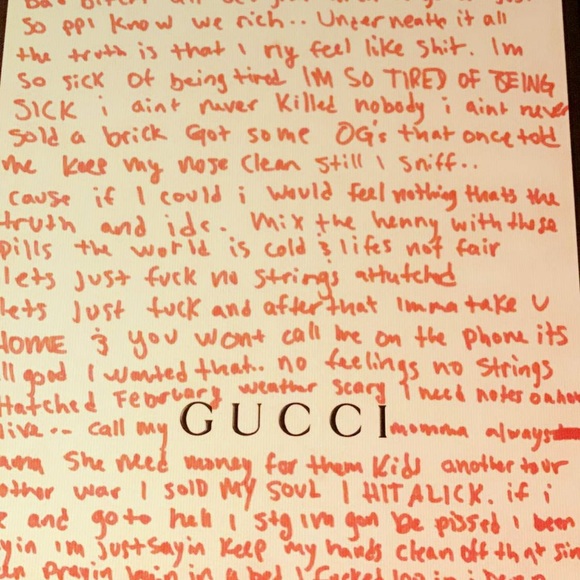 So ppl know we rich.. Underneath it all
the truth is that I rly feel like shit. Im
So sick of being tired IM SO TIRED OF BEING
SICK i aint never Killed nobody i aint never
sold a brick Got some OG's that once told
me Keep my nose clean still I sniff..
cause if I could i would feel nothing thats the
truth and idc. Mix the henny with those
pills the world is cold & lifes not fair
lets Just fuck no strings attutched
lets Just fuck and after that Imma take U
HOME & you wont call me on the phone its
ll good I wanted that.. no feelings no strings
ttatched February weather scary I need notes on how
live -- call my GUCCI momma always
She need money for them Kids another tour
other war I SOLD MY SOUL I HIT A LICK. if i
and go to hell I stg im gon be pissed I been
yin im just sayin Keep my hands clean off that
prayin in a bed I fucked